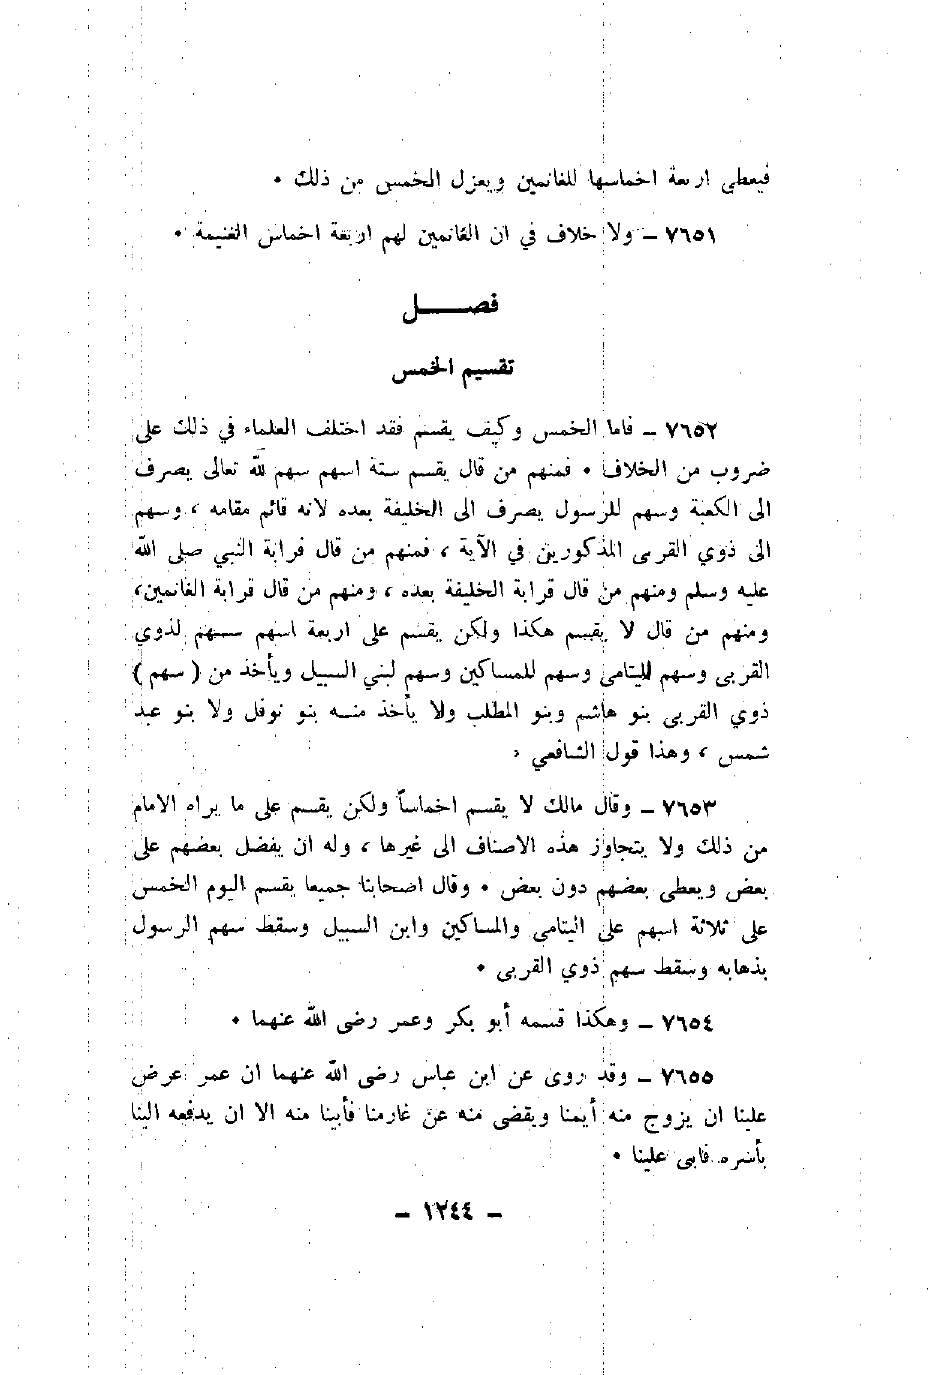 فيعطى اربعة اخماسها للغانمين ويعزل الخمس من ذلك •
٧٦٥١ – ولا خلاف في ان الغانمين لهم اربعة اخماس الغنيمة •
فصــــل
تقسيم الخمس
٧٦٥٢ – فاما الخمس وكيف يقسم فقد اختلف العلماء في ذلك على
ضروب من الخلاف • فمنهم من قال يقسم ستة اسهم سهم لله تعالى يصرف
الى الكعبة وسهم للرسول يصرف الى الخليفة بعده لانه قائم مقامه ، وسهم
الى ذوي القربى المذكورين في الآية ، فمنهم من قال قرابة النبي صلى الله
عليه وسلم ومنهم من قال قرابة الخليفة بعده ، ومنهم من قال قرابة الغانمين،
ومنهم من قال لا يقسم هكذا ولكن يقسم على اربعة اسهم سـهم لذوي
القربى وسهم لليتامى وسهم للمساكين وسهم لبني السبيل ويأخذ من ( سهم )
ذوي القربى بنو هاشم وبنو المطلب ولا يأخذ منـه بنو نوفل ولا بنو عبد
شمس ، وهذا قول الشافعي •
٧٦٥٣ – وقال مالك لا يقسم اخماساً ولكن يقسم على ما يراه الامام
من ذلك ولا يتجاوز هذه الاصناف الى غيرها ، وله ان يفضل بعضهم على
بعض ويعطى بعضهم دون بعض • وقال اصحابنا جميعا يقسم اليوم الخمس
على ثلاثة اسهم على اليتامى والمساكين وابن السبيل وسقط سهم الرسول
بذهابه وسقط سهم ذوي القربى •
٧٦٥٤ – وهكذا قسمه أبو بكر وعمر رضى الله عنهما •
٧٦٥٥ – وقد روى عن ابن عباس رضى الله عنهما ان عمر عرض
علينا ان يزوج منه أيمنا ويقضى منه عن غارمنا فأبينا منه الا ان يدفعه الينا
بأسره فابى علينا •
– ١٢٤٤ –